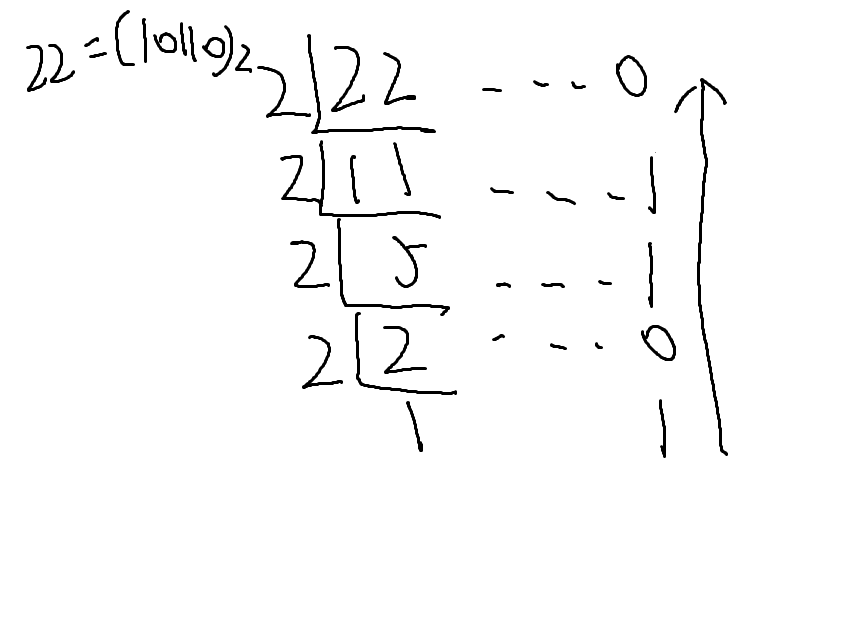 22=(10110)2
2 22 --- 0
2 11 --- 1
2 5 --- 1
2 2 --- 0
1 1